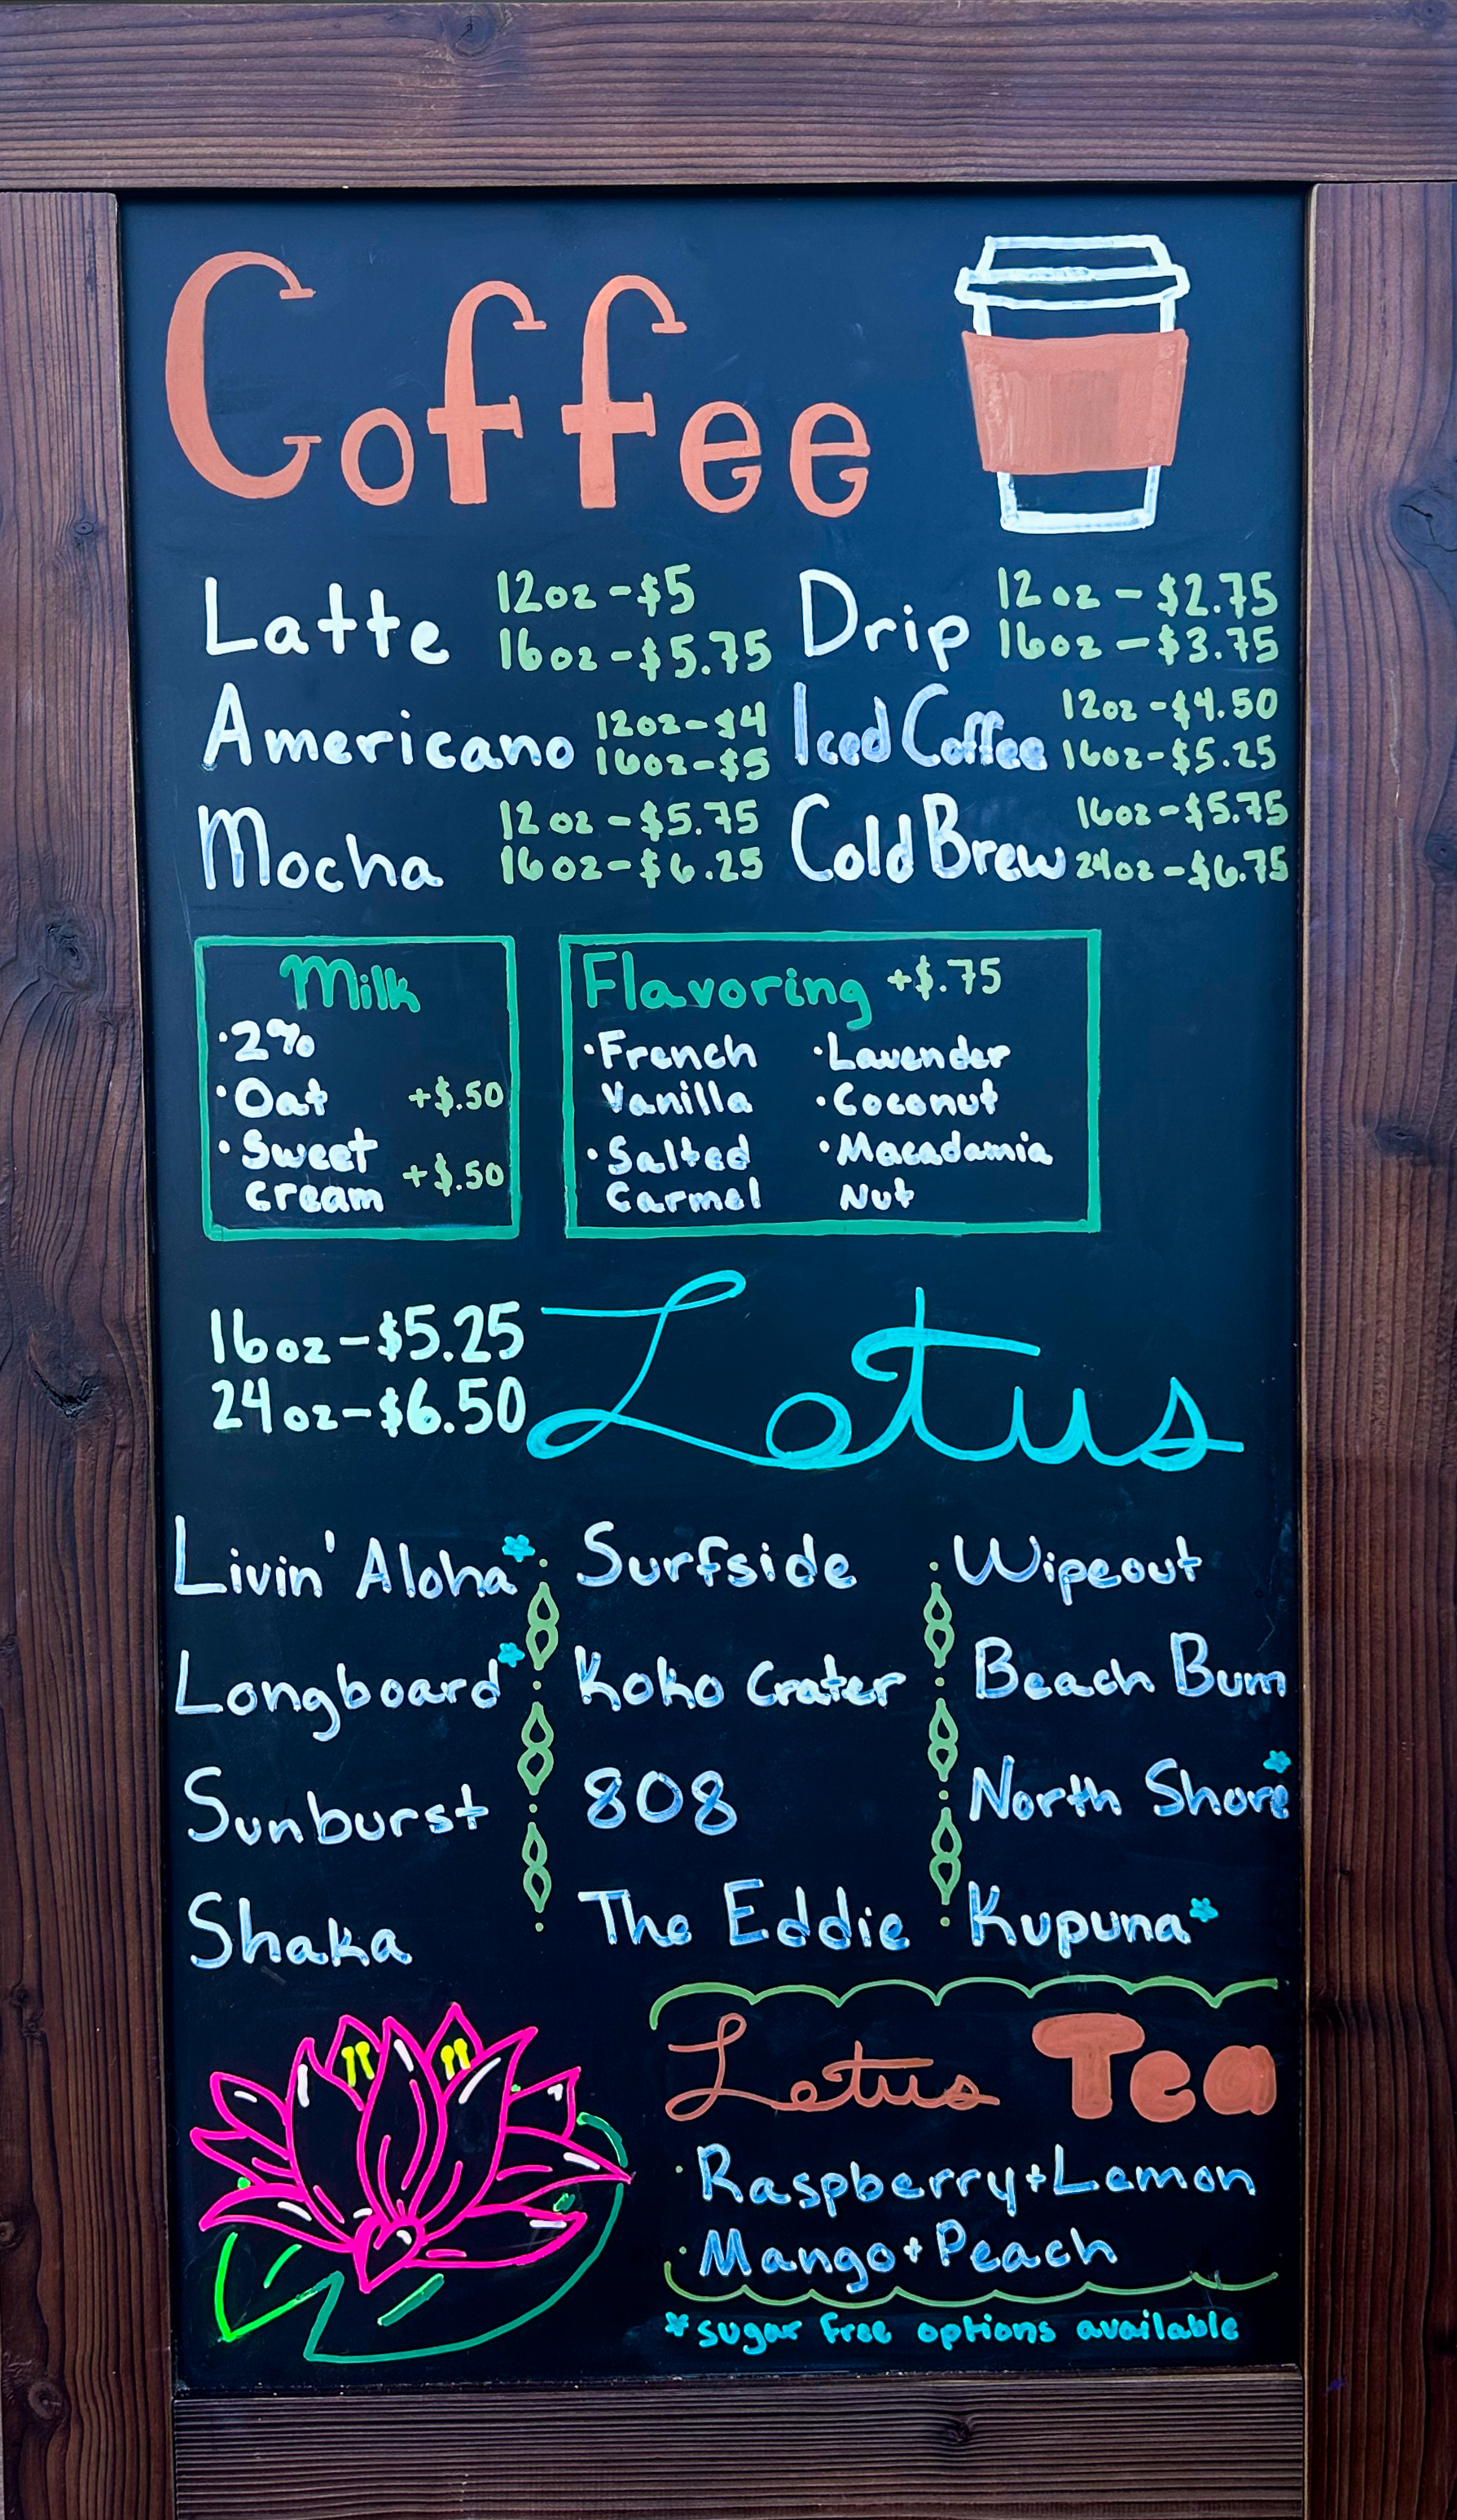 Coffee
Latte 12oz-$5
16oz-$5.75
Drip 12oz-$2.75
16oz-$3.75
Americano 12oz-$4
16oz-$5
Iced Coffee 12oz-$4.50
16oz-$5.25
Mocha 12oz-$5.75
16oz-$6.25
Cold Brew 16oz-$5.75
24oz-$6.75
Milk
·2%
·Oat +$.50
·Sweet
cream +$.50
Flavoring +$.75
·French
Vanilla
·Salted
Carmel
·Lavender
·Coconut
·Macadamia
Nut
16oz-$5.25
24oz-$6.50
Lotus
Livin' Aloha*
Longboard*
Sunburst
Shaka
Surfside
Koko Crater
808
The Eddie
Wipeout
Beach Bum
North Shore*
Kupuna*
Lotus Tea
·Raspberry+Lemon
·Mango+Peach
*sugar free options available